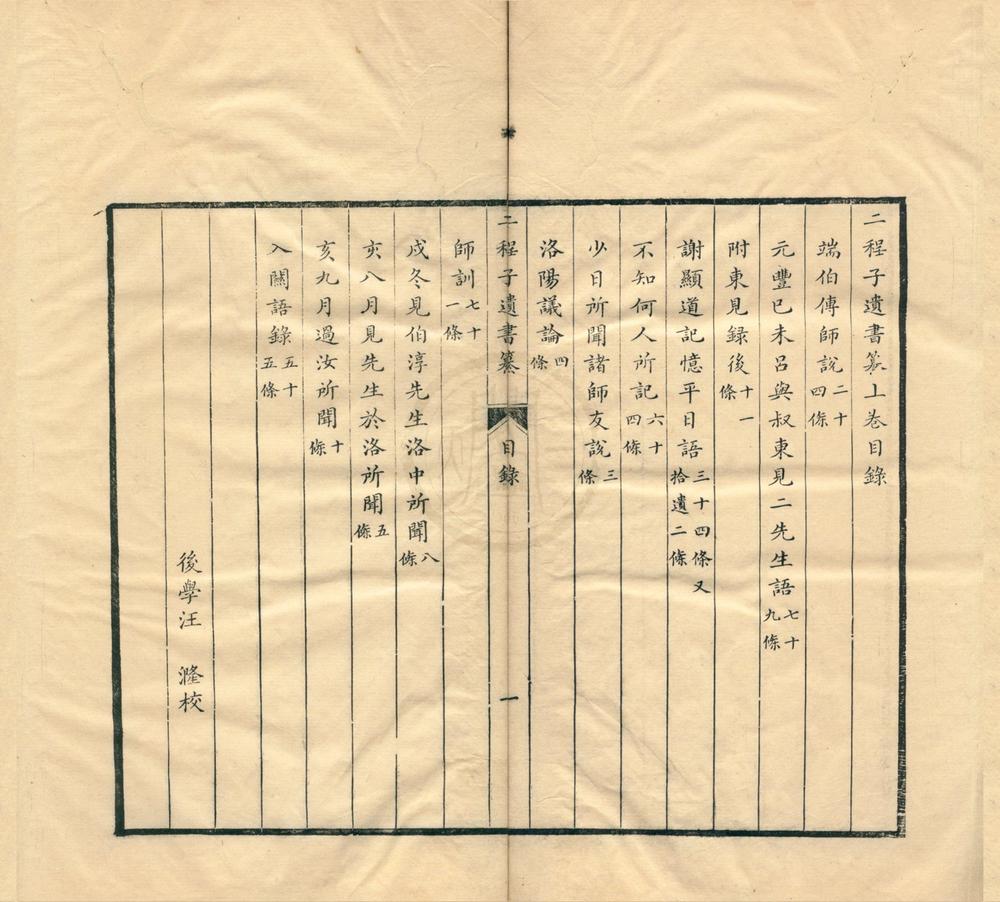 二程子遺書纂上卷目錄
端伯傳師說二十四條
元豐己未呂與叔東見二先生語七十九條
附東見録後十一條
謝顯道記憶平日語三十四條又拾遺二條
不知何人所記六十四條
少日所聞諸師友說三條
洛陽議論四條
二程子遺書纂 目錄 一
師訓七十一條
戌冬見伯淳先生洛中所聞八條
亥八月見先生於洛所聞五條
亥九月過汝所聞十條
入關語錄五十五條
後學汪 漋校